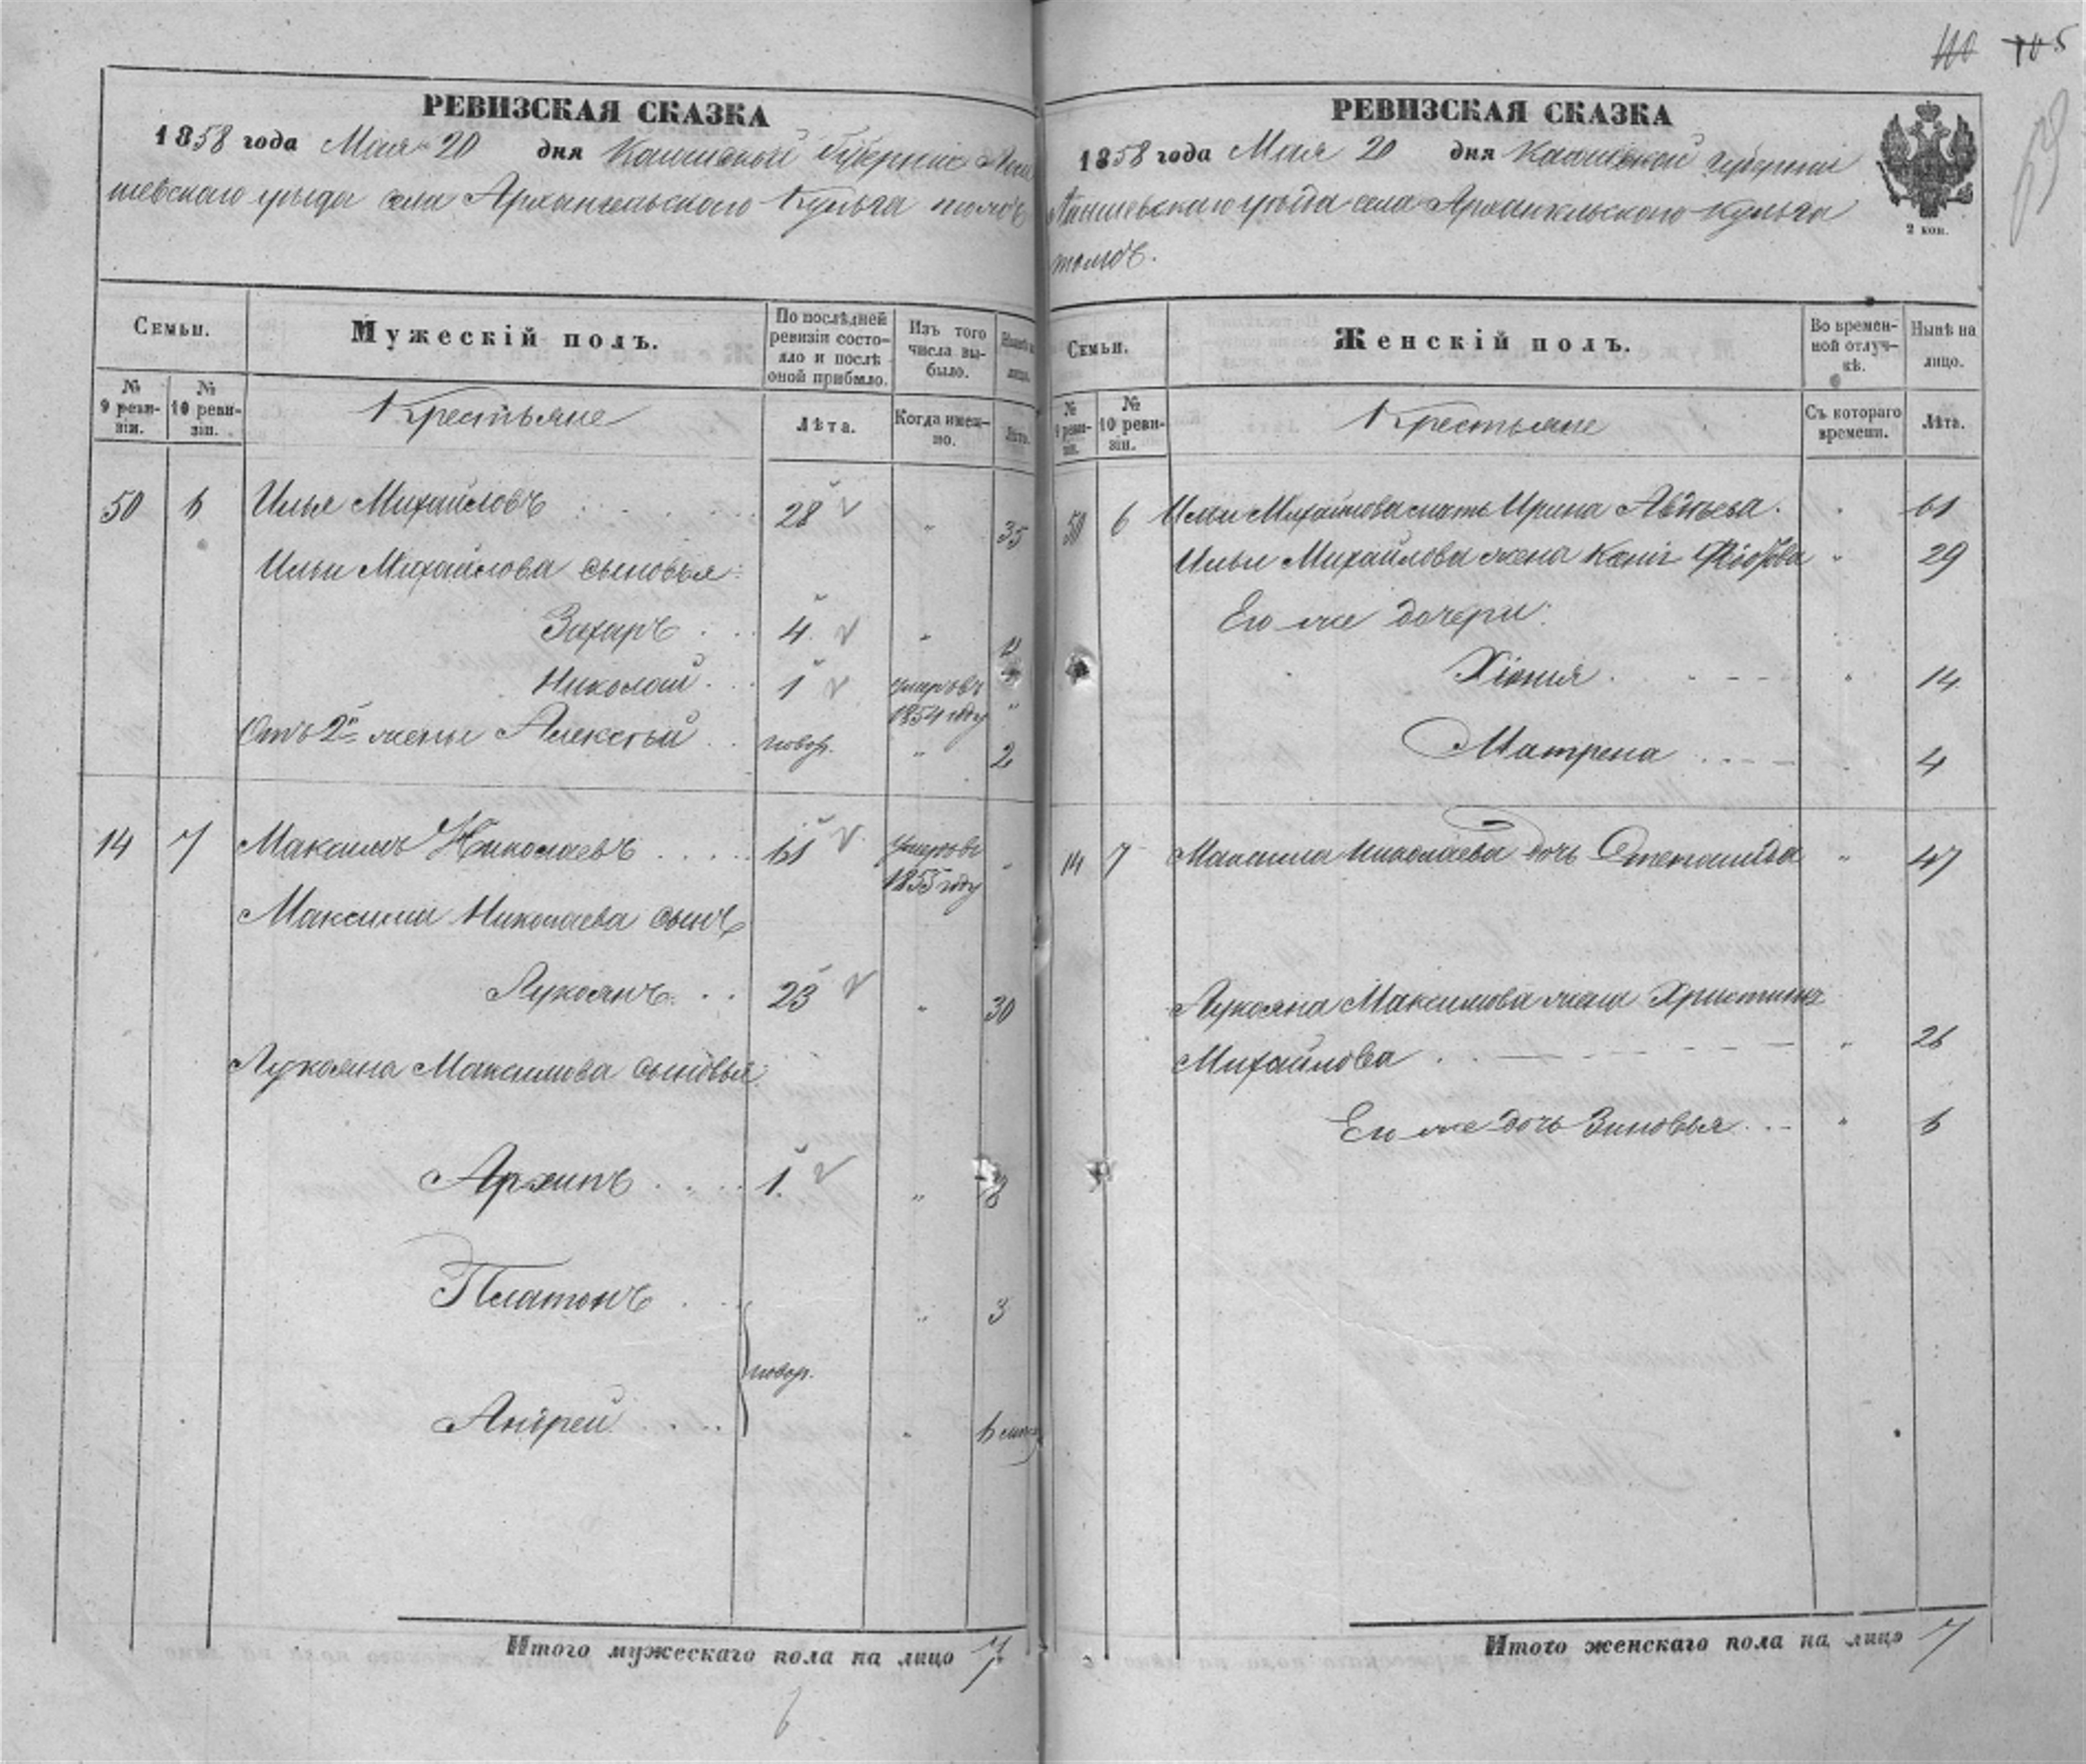 110 105
59
РЕВИЗСКАЯ СКАЗКА
1858 года Мая 20 дня Казанской Губерніи Лаи
шевскаго уѣзда села Архангельскаго Кульга тожъ
Семьи.
Мужескій полъ.
По послѣдней ревизіи состояло и послѣ оной прибыло.
Изъ того числа выбыло.
Нынѣ на лицо.
№ 9 ревизіи.
№ 10 ревизіи.
Крестьяне
Лѣта.
Когда именно.
Лѣта.
50 6 Илья Михайловъ 28 " 35
Ильи Михайлова сыновья:
Захаръ 4 "
Николай 1 умеръ въ
1854 году "
Отъ 2й жены Алексѣй новор. " 2
14 7 Максимъ Николаевъ 61 умеръ въ "
1855 году
Максима Николаева сынъ
Лукоянъ 23 " 30
Лукояна Максимова сыновья:
Архипъ 1 " 8
Платонъ " 3
новор.
Андрей " 6
Итого мужескаго пола на лицо 7
6
РЕВИЗСКАЯ СКАЗКА
1858 года Мая 20 дня Казанской губерніи
Лаишевскаго уѣзда села Архангельскаго Кульга
тожъ.
2 коп.
Семьи.
Женскій полъ.
Во временной отлучкѣ.
Нынѣ на лицо.
№ 9 ревизіи.
№ 10 ревизіи.
Крестьяне
Съ котораго времени.
Лѣта.
50 6 Ильи Михайлова мать Ирина Авдѣева. " 61
Ильи Михайлова жена " 29
Его же дочери:
Хіонія " 14
Матрена " 4
14 7 Максима Николаева дочь Степанида " 47
Лукояна Максимова жена Христина
Михайлова " 26
Его же дочь Зиновья " 6
Итого женскаго пола на лицо 7